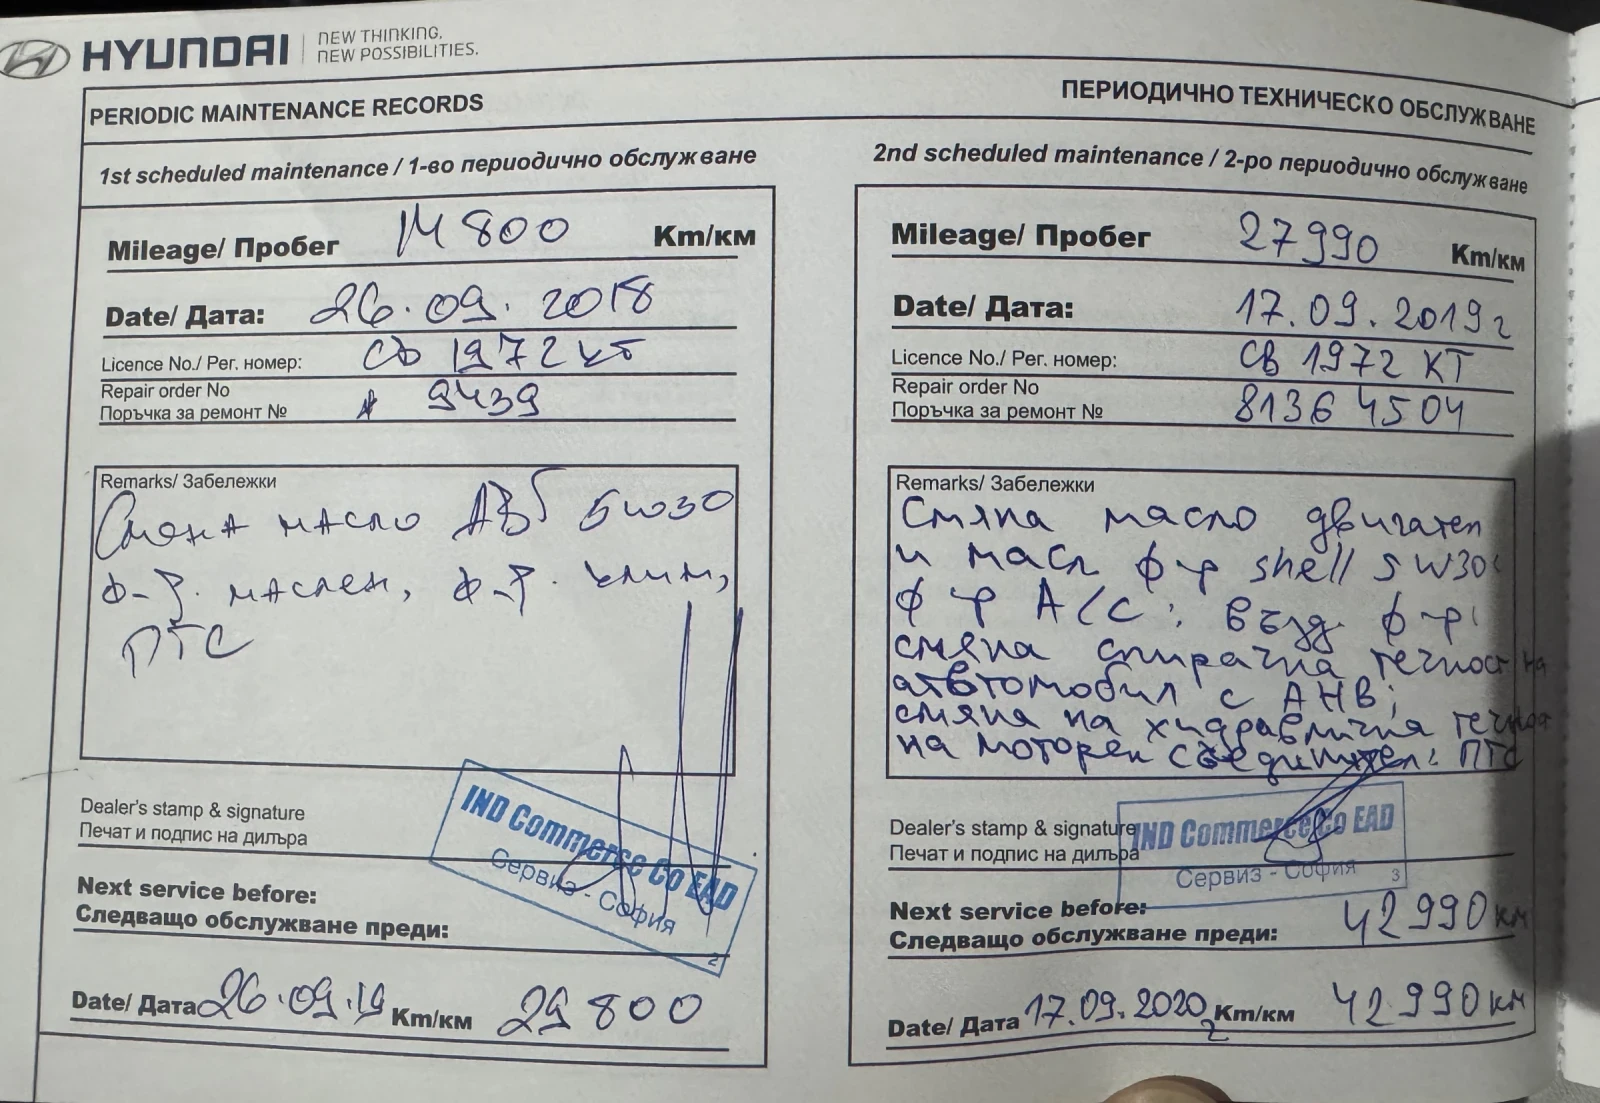 HYUNDAI
NEW THINKING.
NEW POSSIBILITIES.
PERIODIC MAINTENANCE RECORDS
ПЕРИОДИЧНО ТЕХНИЧЕСКО ОБСЛУЖВАНЕ
1st scheduled maintenance / 1-во периодично обслужване
Mileage/ Пробег 14 800 Km/км
Date/ Дата: 26.09.2018
Licence No./ Рег. номер: СВ 1972 КТ
Repair order No
Поръчка за ремонт № 9439
Remarks/ Забележки
Смяна масло ДВГ 5W30
ф-р. маслен, ф-р. клим,
ПТС
Dealer's stamp & signature
Печат и подпис на дилъра
IND Commerce Co EAD
Сервиз - София
2
Next service before:
Следващо обслужване преди:
Date/ Дата 26.09.19 Km/км 29 800
2nd scheduled maintenance / 2-ро периодично обслужване
Mileage/ Пробег 27990 Km/км
Date/ Дата: 17.09.2019г
Licence No./ Рег. номер: СВ 1972 КТ
Repair order No
Поръчка за ремонт № 81364504
Remarks/ Забележки
Смяна масло двигател
и масл ф-р shell 5W30
ф-р A/C; възд. ф-р;
смяна спирачна течност на
автомобил с АНВ;
смяна на хидравлична течност
на моторен съединител; ПТС
Dealer's stamp & signature
Печат и подпис на дилъра
IND Commerce Co EAD
Сервиз - София
3
Next service before: 42 990 км
Следващо обслужване преди:
Date/ Дата 17.09.2020г Km/км 42 990 км